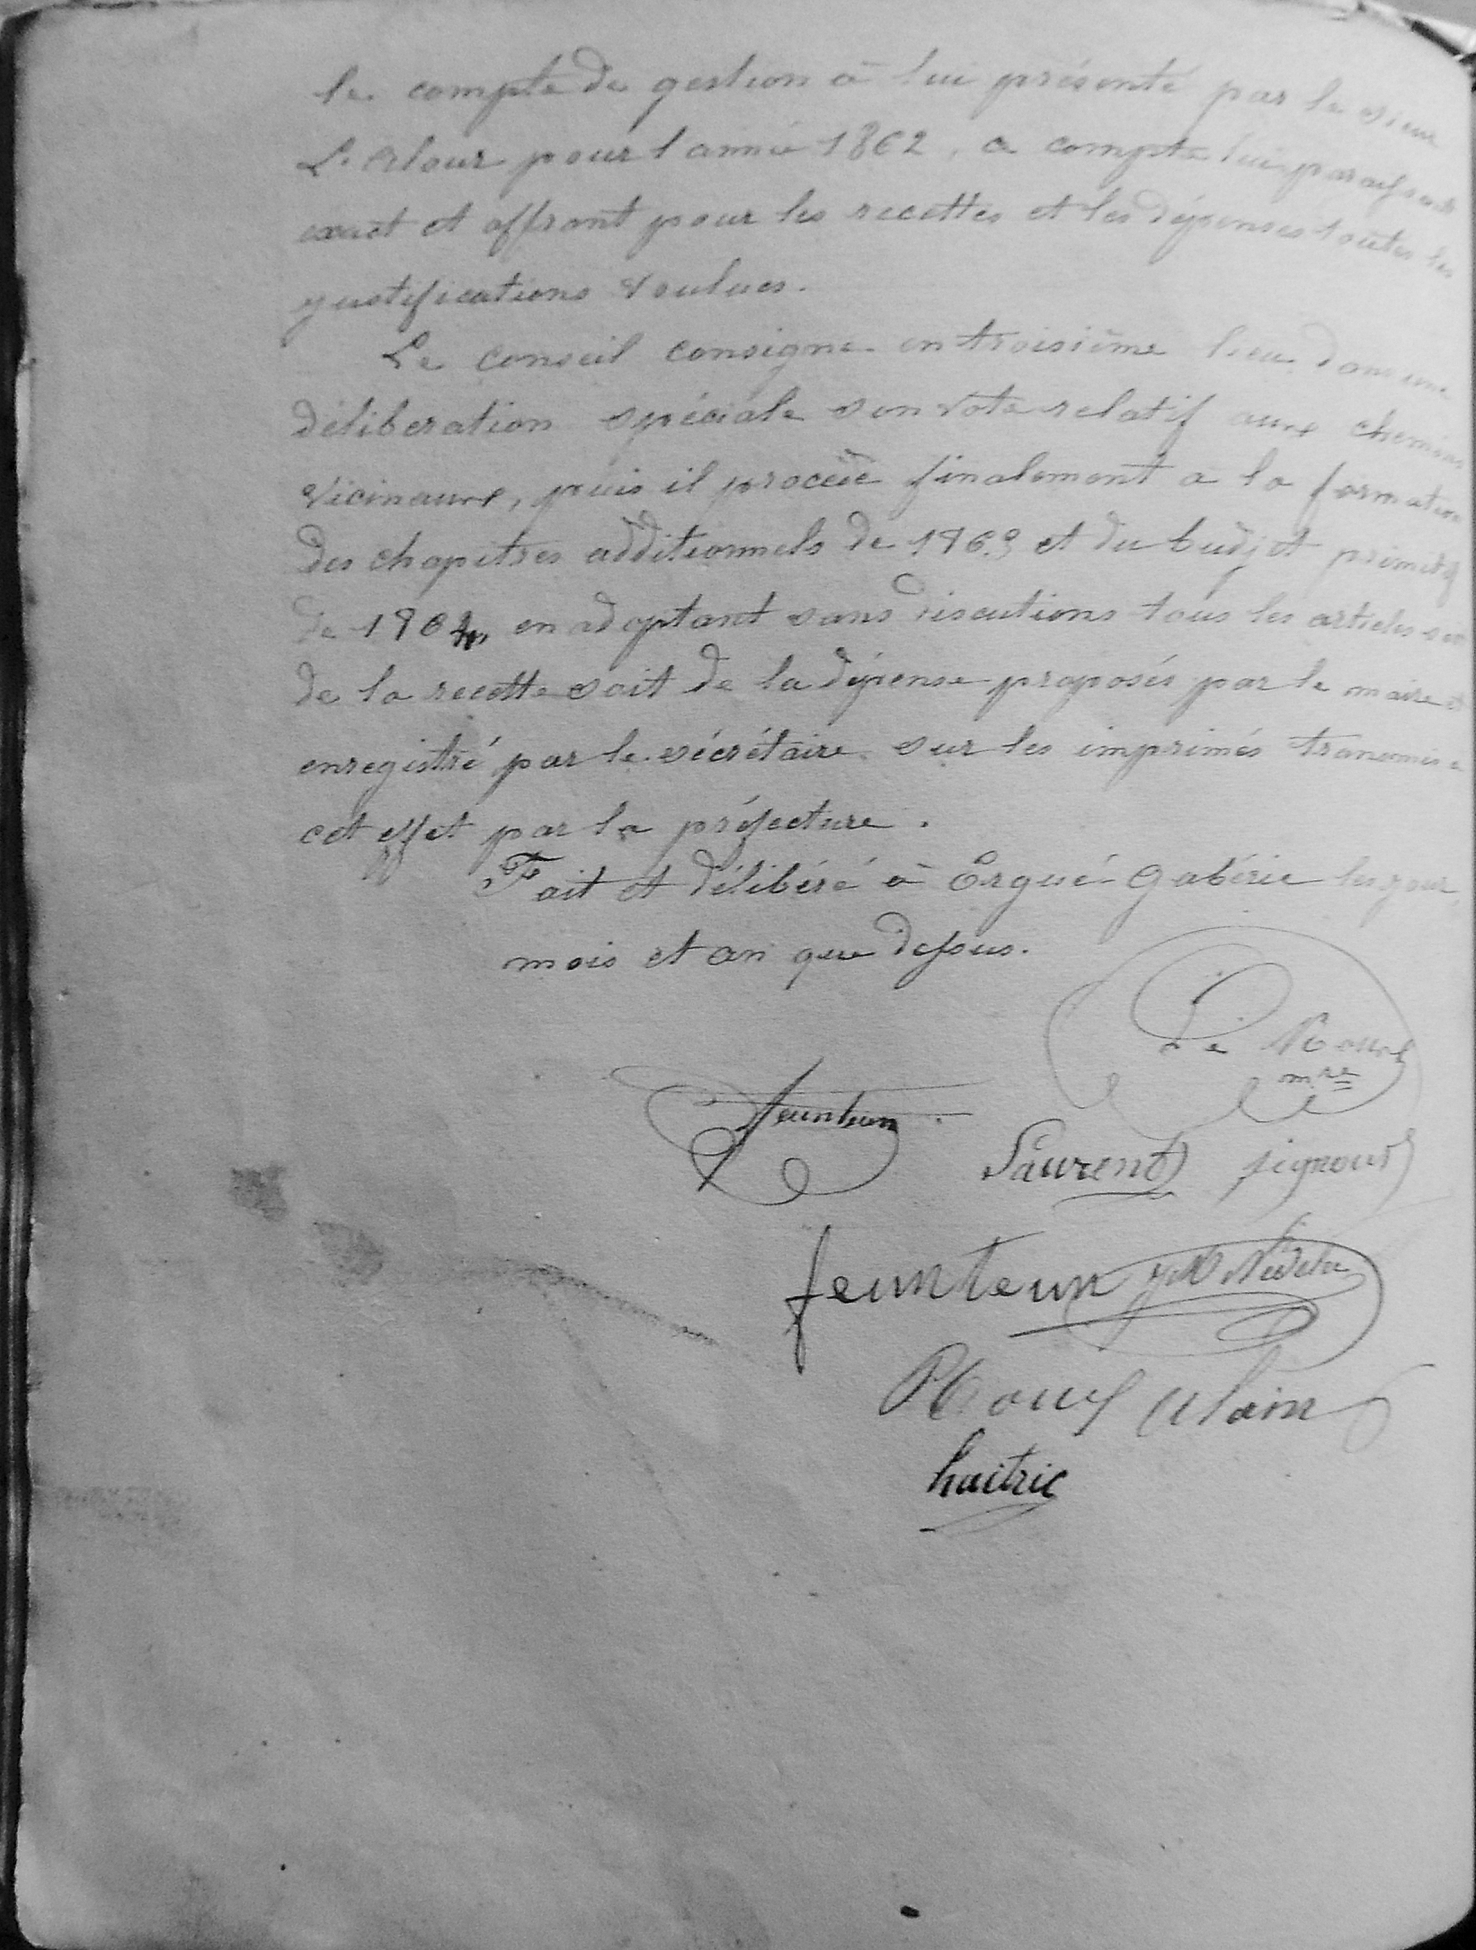 le compte de gestion à lui présenté par le sieur
Le Alour pour l'année 1862, ce compte lui paraissant
exact et offrant pour les recettes et les dépenses toutes les
justifications voulues.
Le conseil consigne en troisième lieu dans une
déliberation spéciale son vote relatif aux chemins
vicinaux, puis il procède finalement a la formation
des chapitres additionnels de 1863 et du budjet primitif
de 1864, en adoptant sans discutions tous les articles soit
de la recette soit de la dépense proposés par le maire et
enregistré par le sécrétaire sur les imprimés transmis à
cet effet par la préfecture.
Fait et délibéré à Ergué-Gabéric les jour,
mois et an que dessus.
Le Roux
mre
feunteun
Laurent signour
feunteun JM Nédélec
Roux Alain
huitric